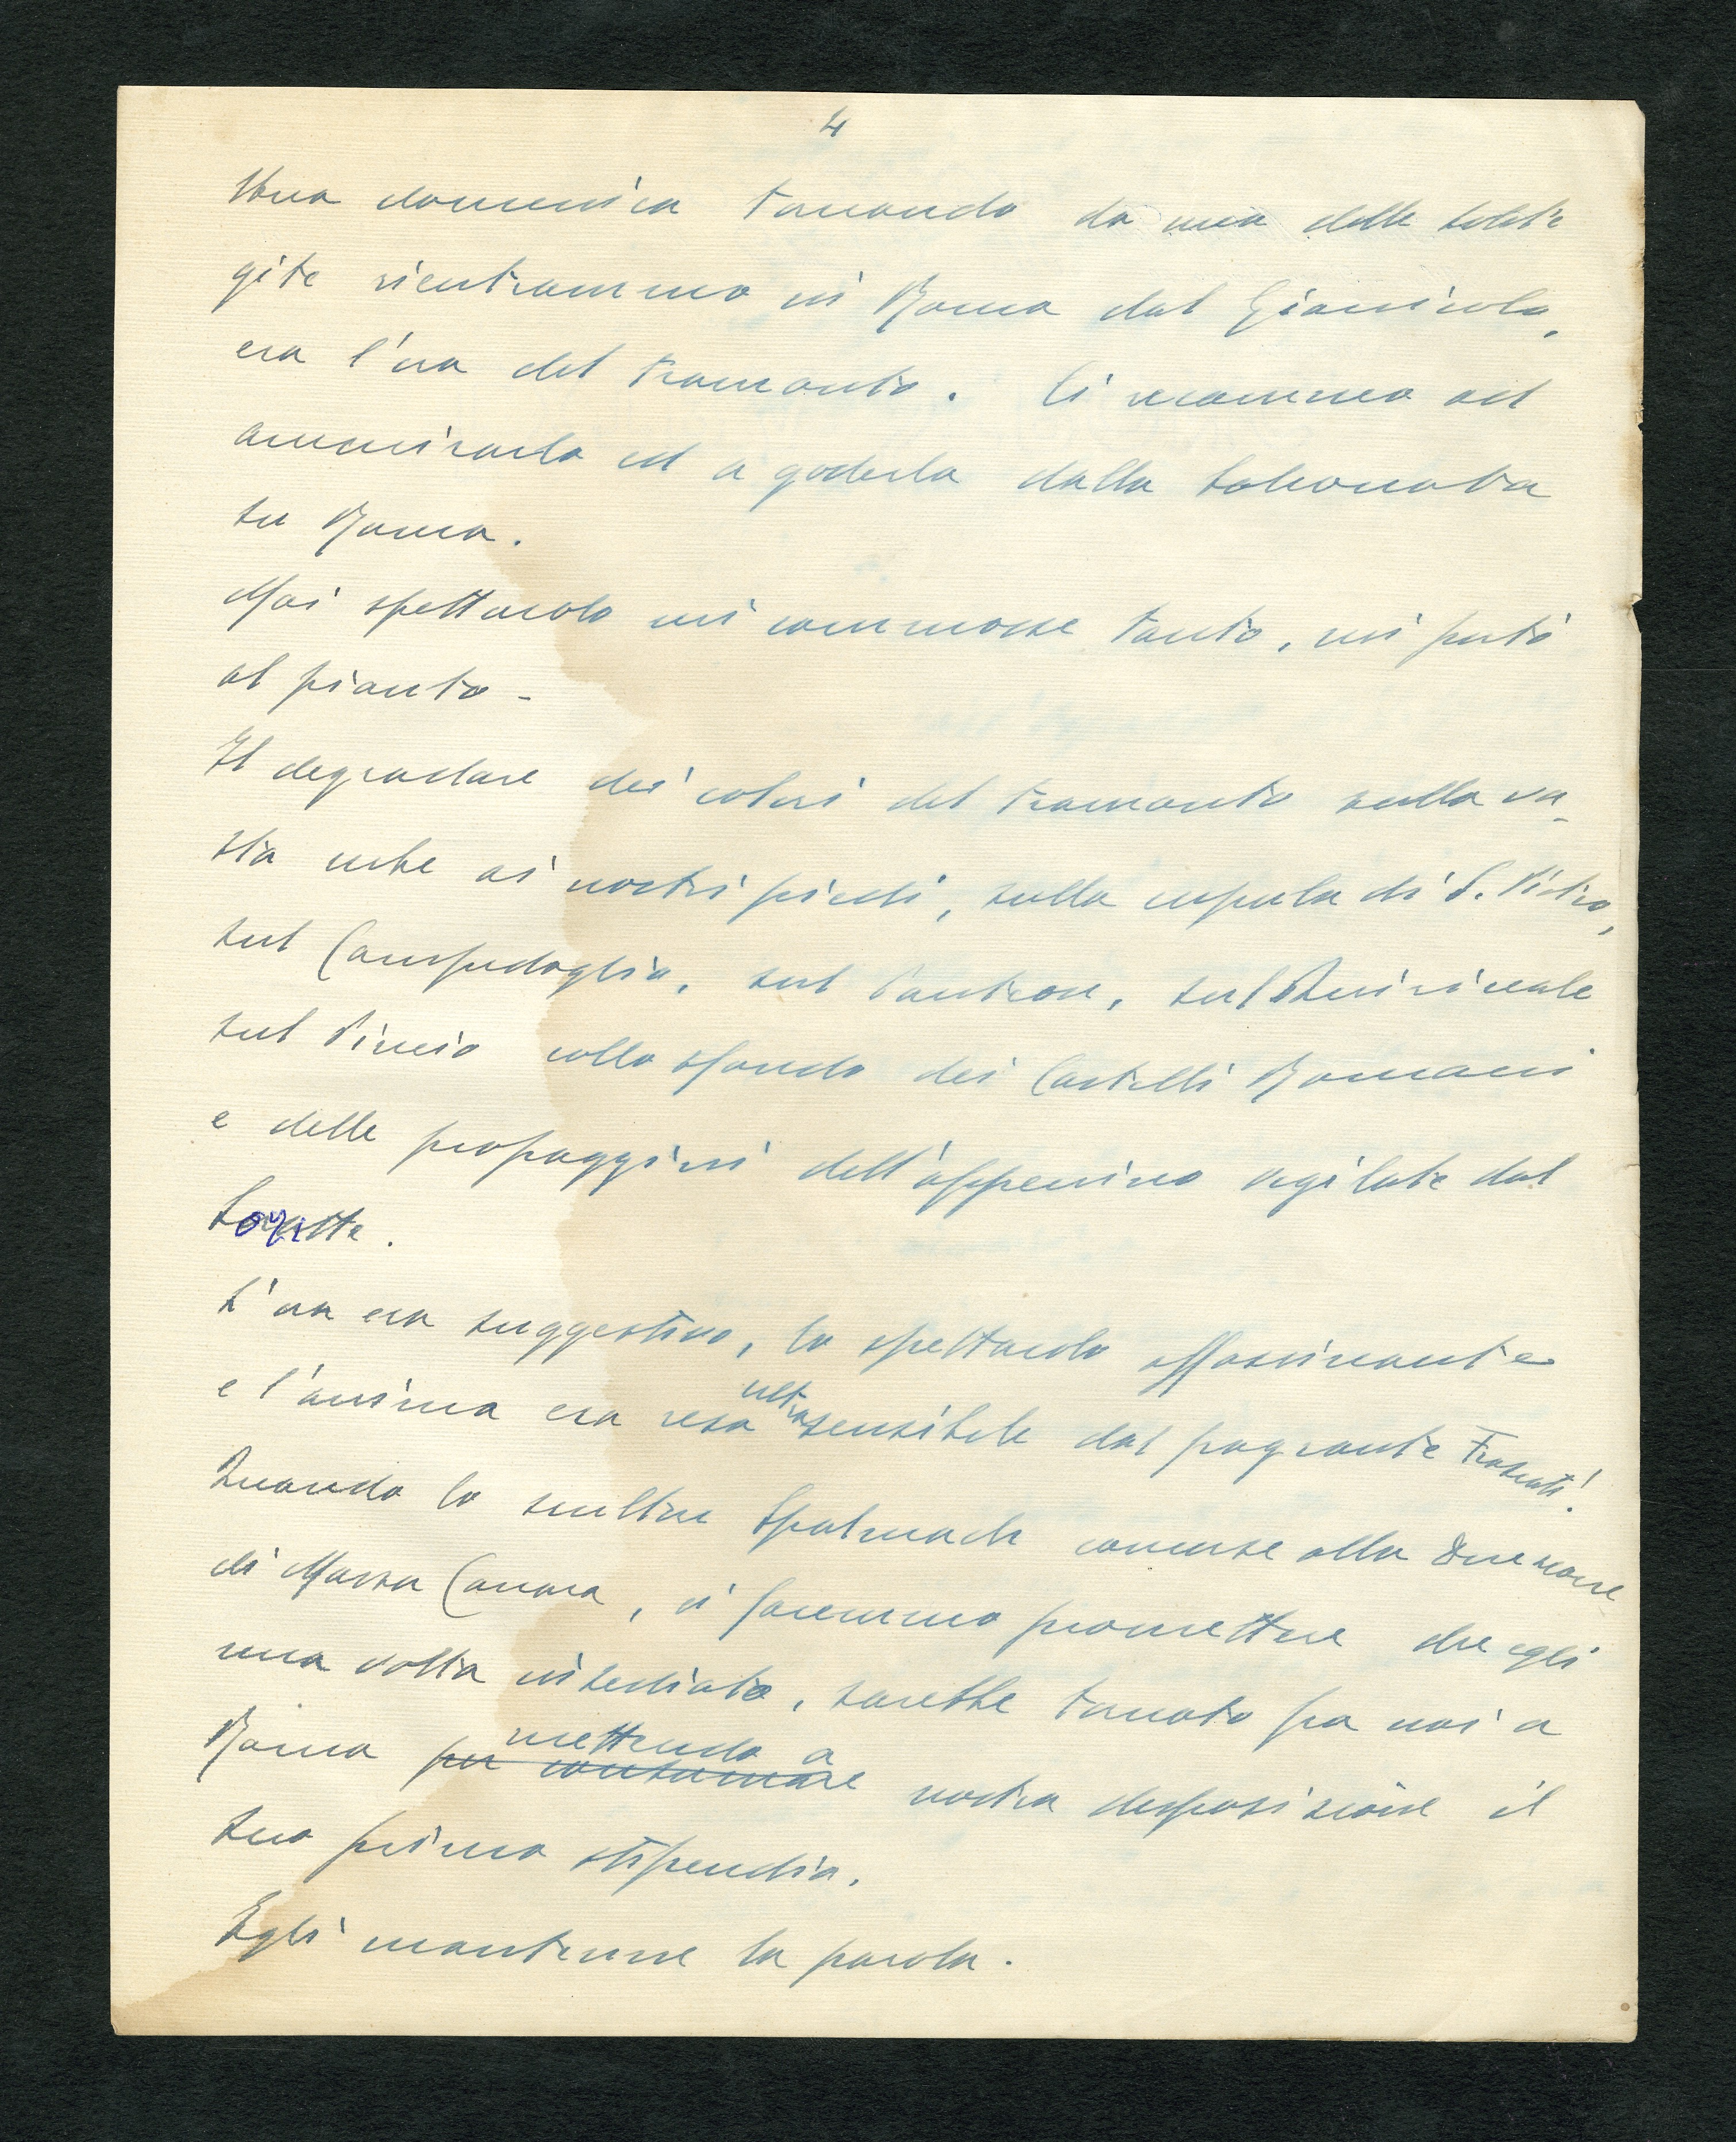 4
Una domenica tornando da una delle solite
gite rientrammo in Roma dal Gianicolo,
era l'ora del tramonto. Ci recammo ad
ammirarlo ed a goderlo dalla balconata
su Roma.
Mai spettacolo mi commosse tanto, mi portò
al pianto -
Il degradare dei colori del tramonto sulla va-
sta urbe ai nostri piedi, sulla cupola di S. Pietro,
sul Campidoglio, sul Panteon, sul Quirinale
sul Pincio collo sfondo dei Castelli Romani
e delle propaggini dell'appenino vigilate dal
Soratte.
L'ora era suggestiva, lo spettacolo affascinante
e l'anima era resa ultrasensibile dal fragrante Frascati!
Quando lo scultore Spalmach concorse alla Direzione
di Massa Carrara, ci facemmo promettere che egli
una volta insediato, sarebbe tornato fra noi a
Roma per consumare mettendo a nostra disposizione il
suo primo stipendio.
Egli mantenne la parola.